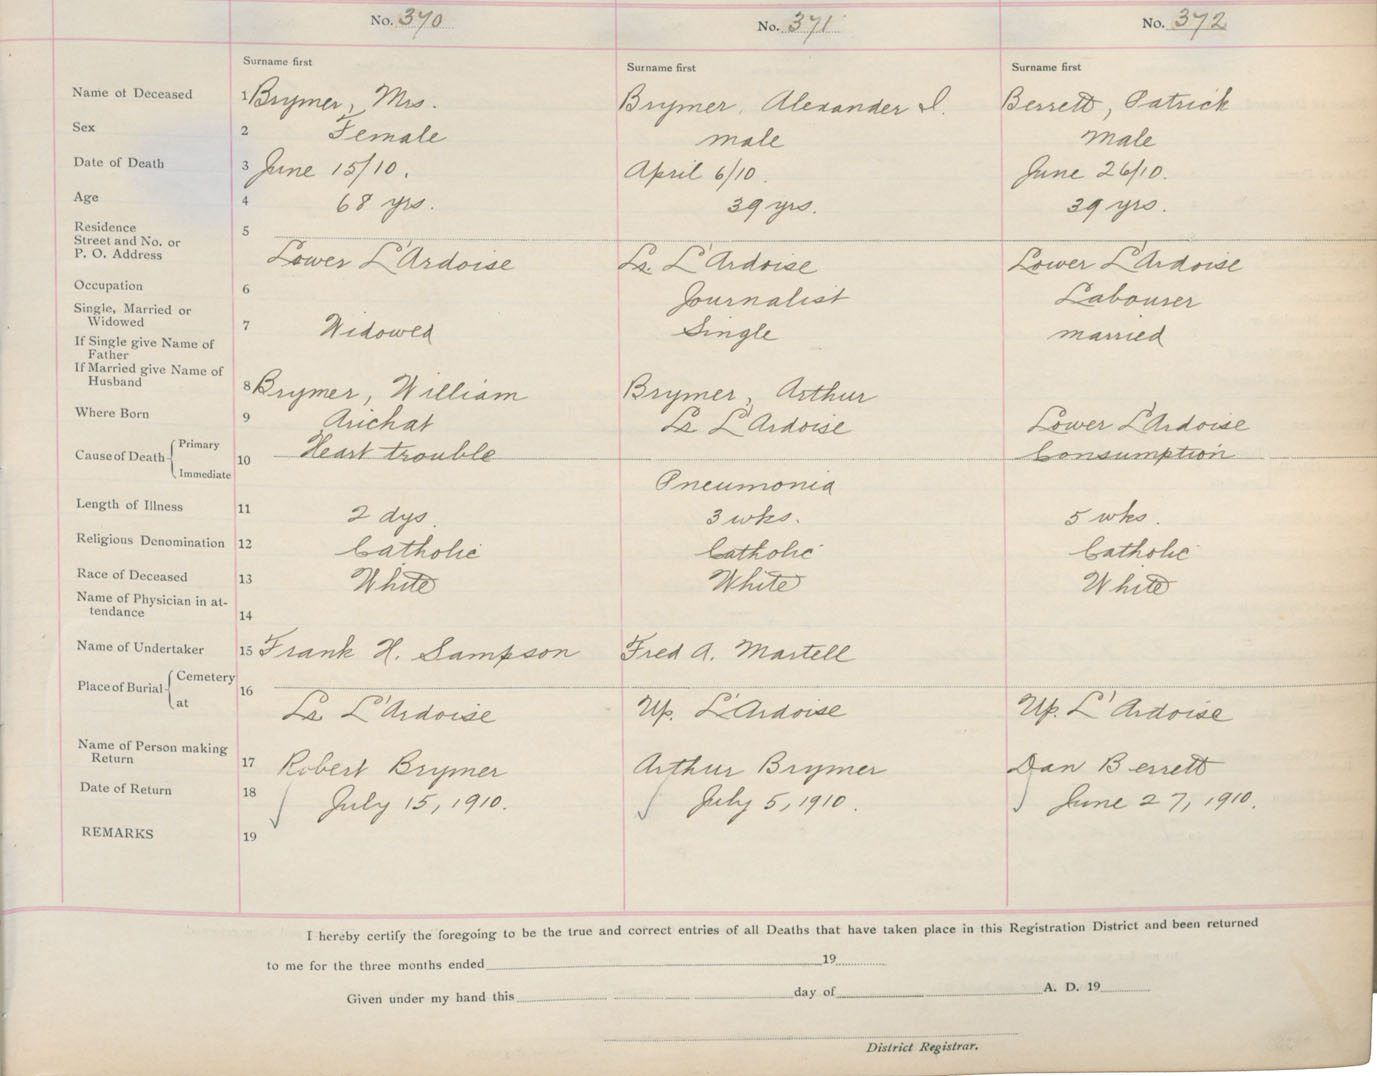 No. 370 No. 371 No. 372
Surname first Surname first Surname first
Name of Deceased 1 Brymer, Mrs. Brymer, Alexander I. Berrett, Patrick
Sex 2 Female male Male
Date of Death 3 June 15/10. April 6/10. June 26/10.
Age 4 68 yrs. 39 yrs. 39 yrs.
Residence
Street and No. or 5
P. O. Address Lower L'Ardoise Lr. L'Ardoise Lower L'Ardoise
Occupation 6 Journalist Labourer
Single, Married or
Widowed 7 Widowed Single married
If Single give Name of
Father
If Married give Name of
Husband 8 Brymer, William Brymer, Arthur
Where Born 9 Arichat Lr L'Ardoise Lower L'Ardoise
Cause of Death Primary 10 Heart trouble Consumption
Immediate Pneumonia
Length of Illness 11 2 dys. 3 wks. 5 wks.
Religious Denomination 12 Catholic Catholic Catholic
Race of Deceased 13 White White White
Name of Physician in at-
tendance 14
Name of Undertaker 15 Frank H. Sampson Fred A. Martell
Place of Burial Cemetery 16
at Lr L'Ardoise Up. L'Ardoise Up. L'Ardoise
Name of Person making
Return 17 Robert Brymer Arthur Brymer Dan Berrett
Date of Return 18 July 15, 1910. July 5, 1910. June 27, 1910.
REMARKS 19
I hereby certify the foregoing to be the true and correct entries of all Deaths that have taken place in this Registration District and been returned
to me for the three months ended 19
Given under my hand this day of A. D. 19
District Registrar.